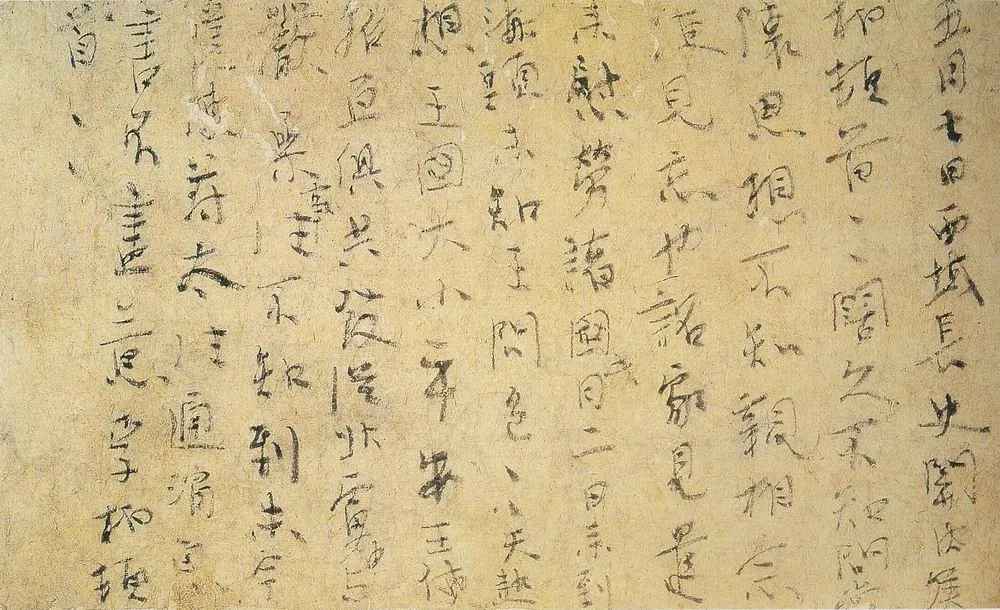 五月七日西域長史關內侯
柏頓首々闊久不知問常
懷思想不知親相念
便見忘也詔家見遣
來慰勞諸國月二日來到
海頭未知王問邑々天熱
想王國大小平安王使
招亘俱共發從北虜
嚴參事往不知到未今
遣使苻太往通消息
書不盡意李柏頓
首々